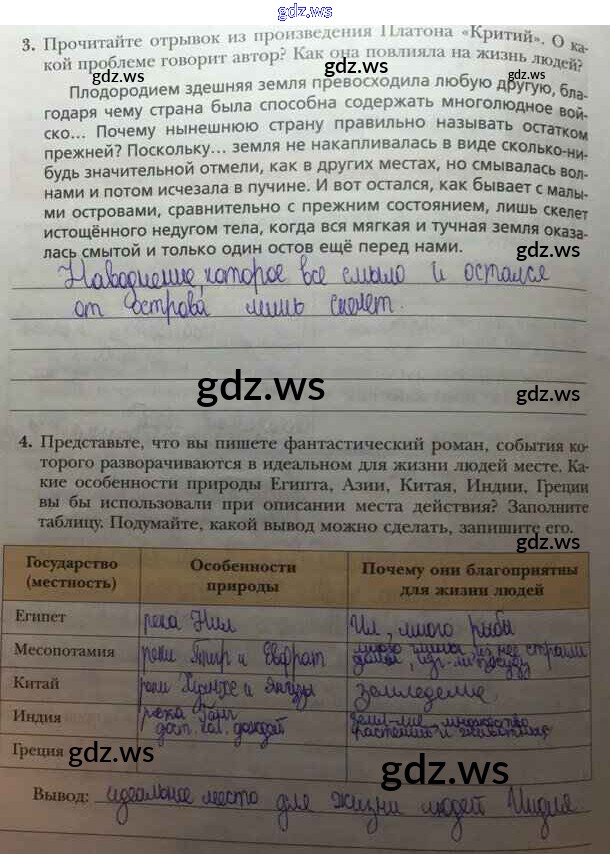 gdz.ws
3. Прочитайте отрывок из произведения Платона «Критий». О ка-
кой проблеме говорит автор? Как она повлияла на жизнь людей?
gdz.ws gdz.ws
Плодородием здешняя земля превосходила любую другую, бла-
годаря чему страна была способна содержать многолюдное вой-
ско... Почему нынешнюю страну правильно называть остатком
прежней? Поскольку... земля не накапливалась в виде сколько-ни-
будь значительной отмели, как в других местах, но смывалась вол-
нами и потом исчезала в пучине. И вот остался, как бывает с малы-
ми островами, сравнительно с прежним состоянием, лишь скелет
истощённого недугом тела, когда вся мягкая и тучная земля оказа-
лась смытой и только один остов ещё перед нами.
gdz.ws
Наводнение, которое все смыло и остался
от острова лишь скелет.
gdz.ws
gdz.ws
gdz.ws
4. Представьте, что вы пишете фантастический роман, события ко-
торого разворачиваются в идеальном для жизни людей месте. Ка-
кие особенности природы Египта, Азии, Китая, Индии, Греции
вы бы использовали при описании места действия? Заполните
таблицу. Подумайте, какой вывод можно сделать, запишите его.
gdz.ws
Государство (местность) Особенности природы Почему они благоприятны для жизни людей
Египет река Нил Ил, много рыбы
Месопотамия реки Тигр и Евфрат много глины, из нее строили дома, изг-ли посуду
Китай реки Хуанхе и Янцзы земледелие
Индия река Ганг дост. кол. дождей земл-ие, множество растений и животных
Греция
gdz.ws
gdz.ws
gdz.ws
Вывод: идеальное место для жизни людей Индия
gdz.ws